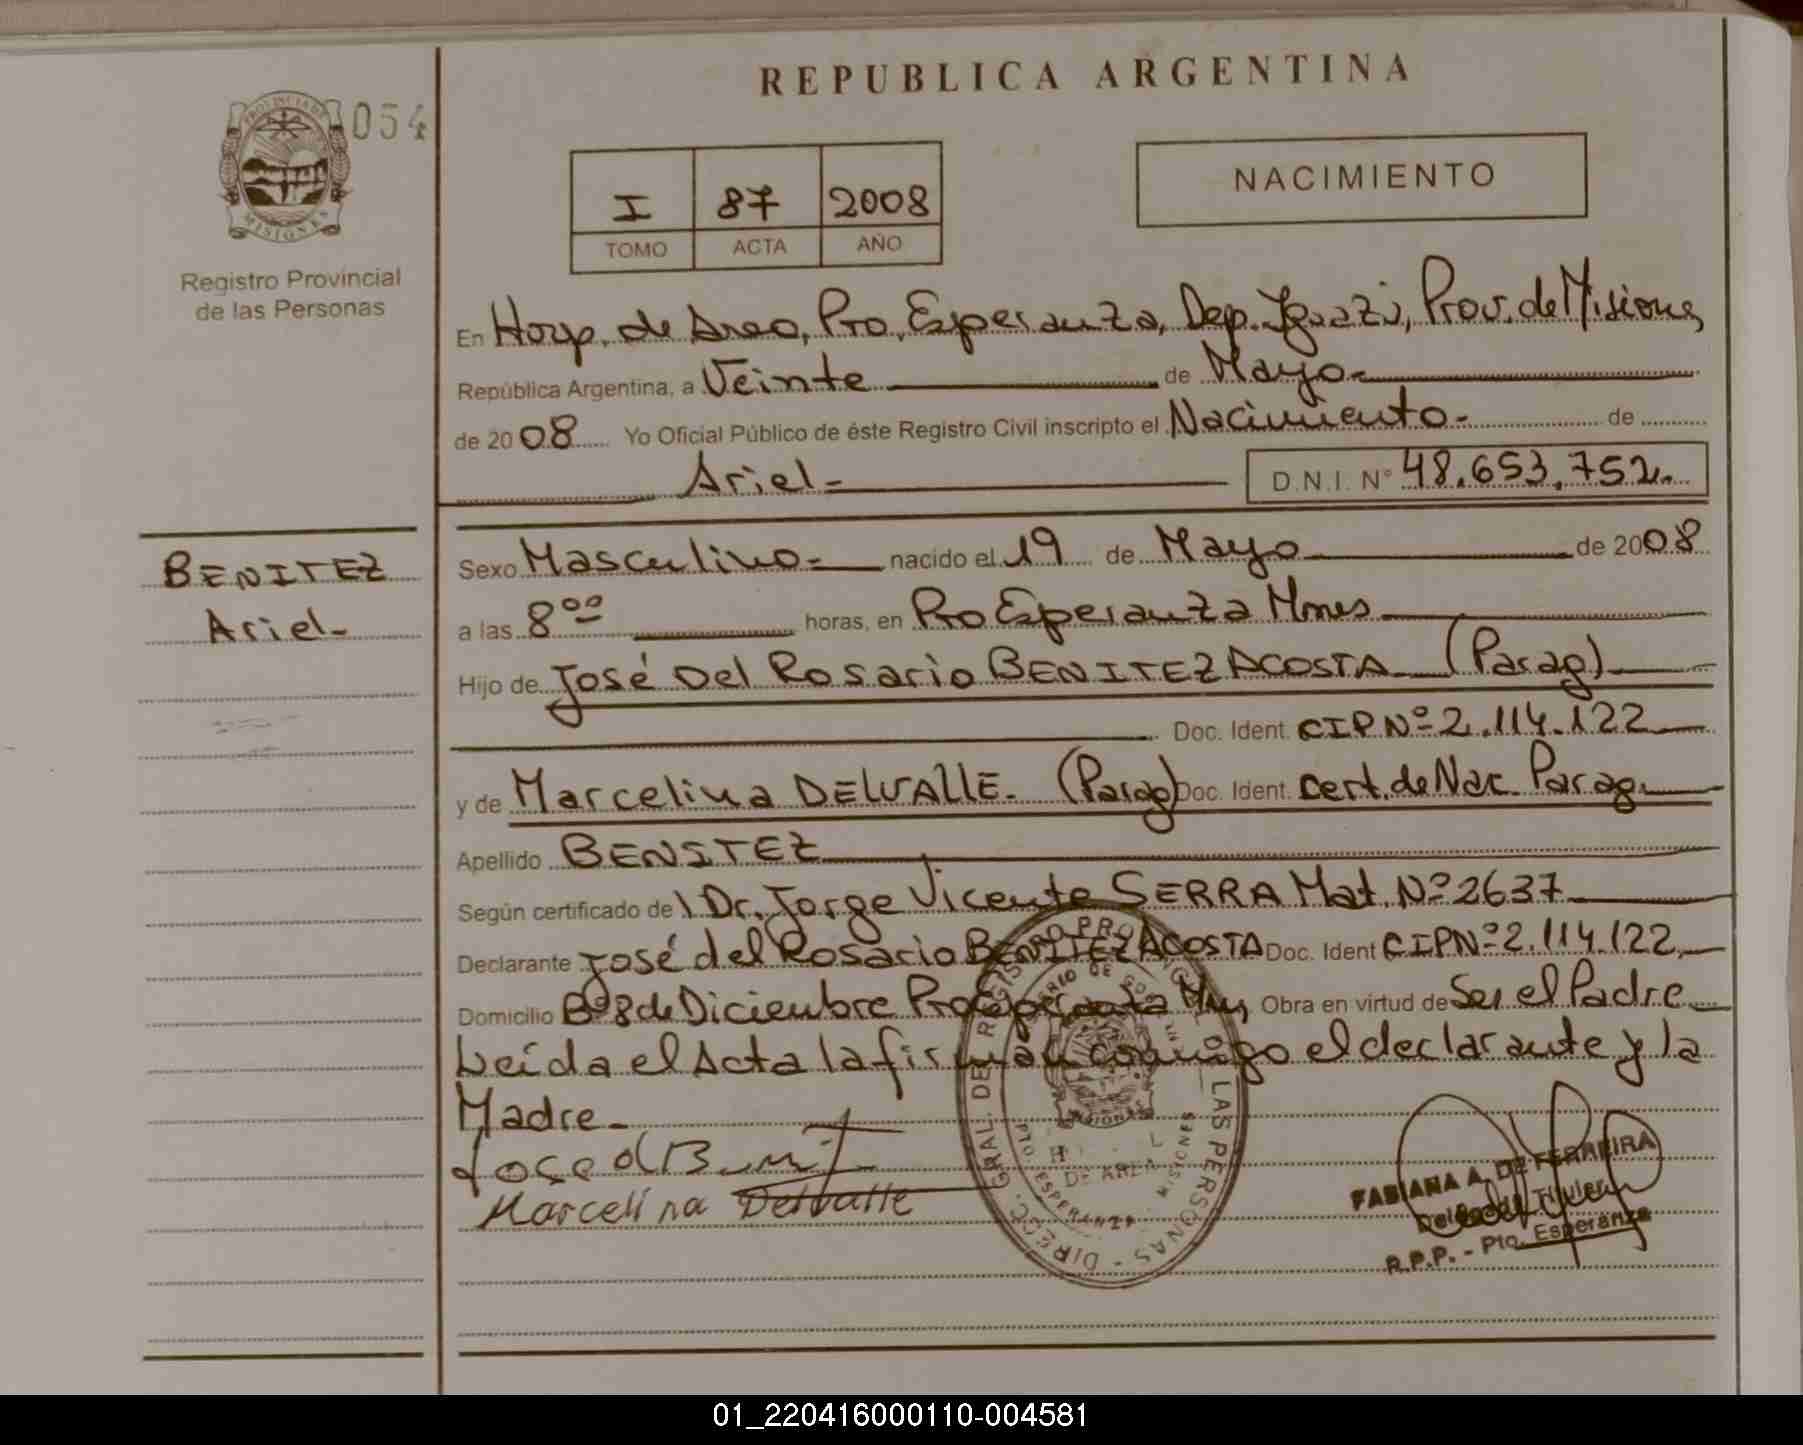 REPUBLICA ARGENTINA
PROVINCIA DE
MISIONES
054
Registro Provincial
de las Personas
I 87 2008
TOMO ACTA AÑO
NACIMIENTO
En Hosp. de Area, Pto. Esperanza, Dep. Iguazú, Prov. de Misiones,
República Argentina, a Veinte de Mayo-
de 2008 Yo Oficial Público de éste Registro Civil inscripto el Nacimiento- de
Ariel- D.N.I. N° 48.653.752.
BENITEZ
Ariel-
Sexo Masculino- nacido el 19 de Mayo de 2008
a las 8 00 horas, en Pto Esperanza Mnes
Hijo de José Del Rosario BENITEZ ACOSTA (Parag)
Doc. Ident. CIP Nº 2.114.122
y de Marcelina DELVALLE. (Parag) Doc. Ident. Cert. de Nac. Parag.
Apellido BENITEZ
Según certificado del Dr. Jorge Vicente SERRA Mat. Nº 2637
Declarante José del Rosario BENITEZ ACOSTA Doc. Ident CIP Nº 2.114.122
Domicilio Bº 8 de Diciembre Pto Esperanza Mns, Obra en virtud de Ser el Padre
Leída el Acta la firman conmigo el declarante y la
Madre-
Marcelina Delvalle
DIREC. GRAL. DEL REGISTRO PROVINCIAL DE LAS PERSONAS -
PTO. ESPERANZA - MISIONES
DE AREA
FABIANA A. DE FERREIRA
Delegada Titular
R.P.P. - Pto. Esperanza
01_220416000110-004581